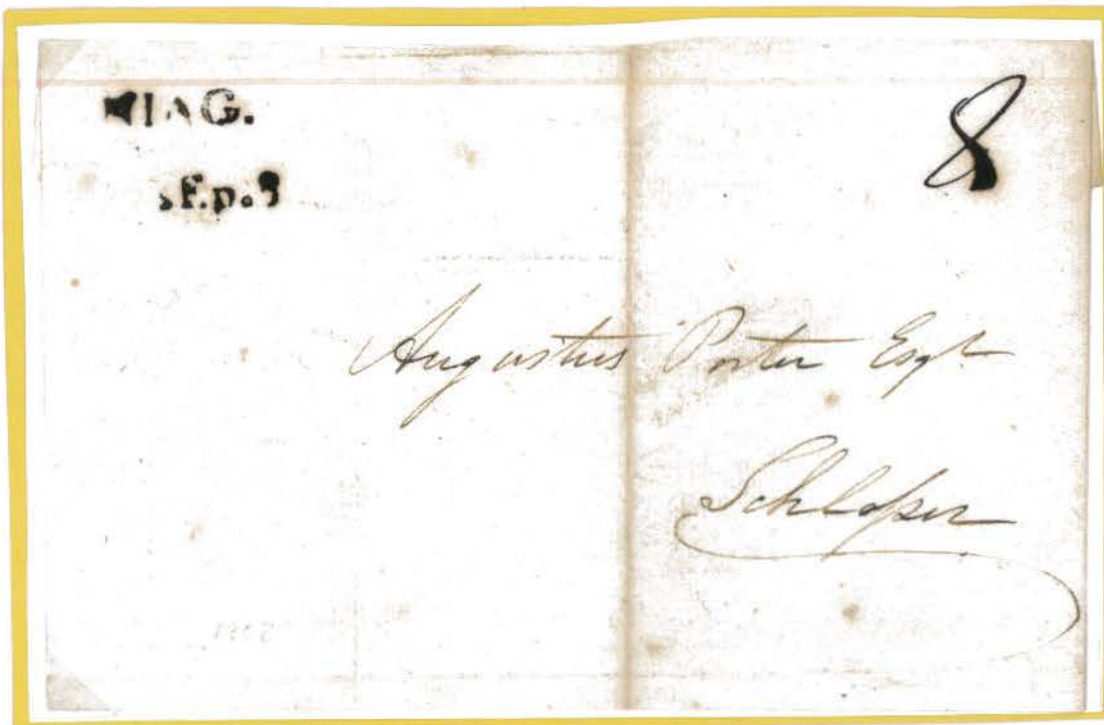 NIAG.
8
sEp. 3
Augustus Porter Esqr
Schlosser